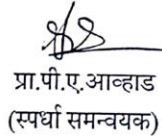 प्रा.पी.ए.आव्हाड
(स्पर्धा समन्वयक)